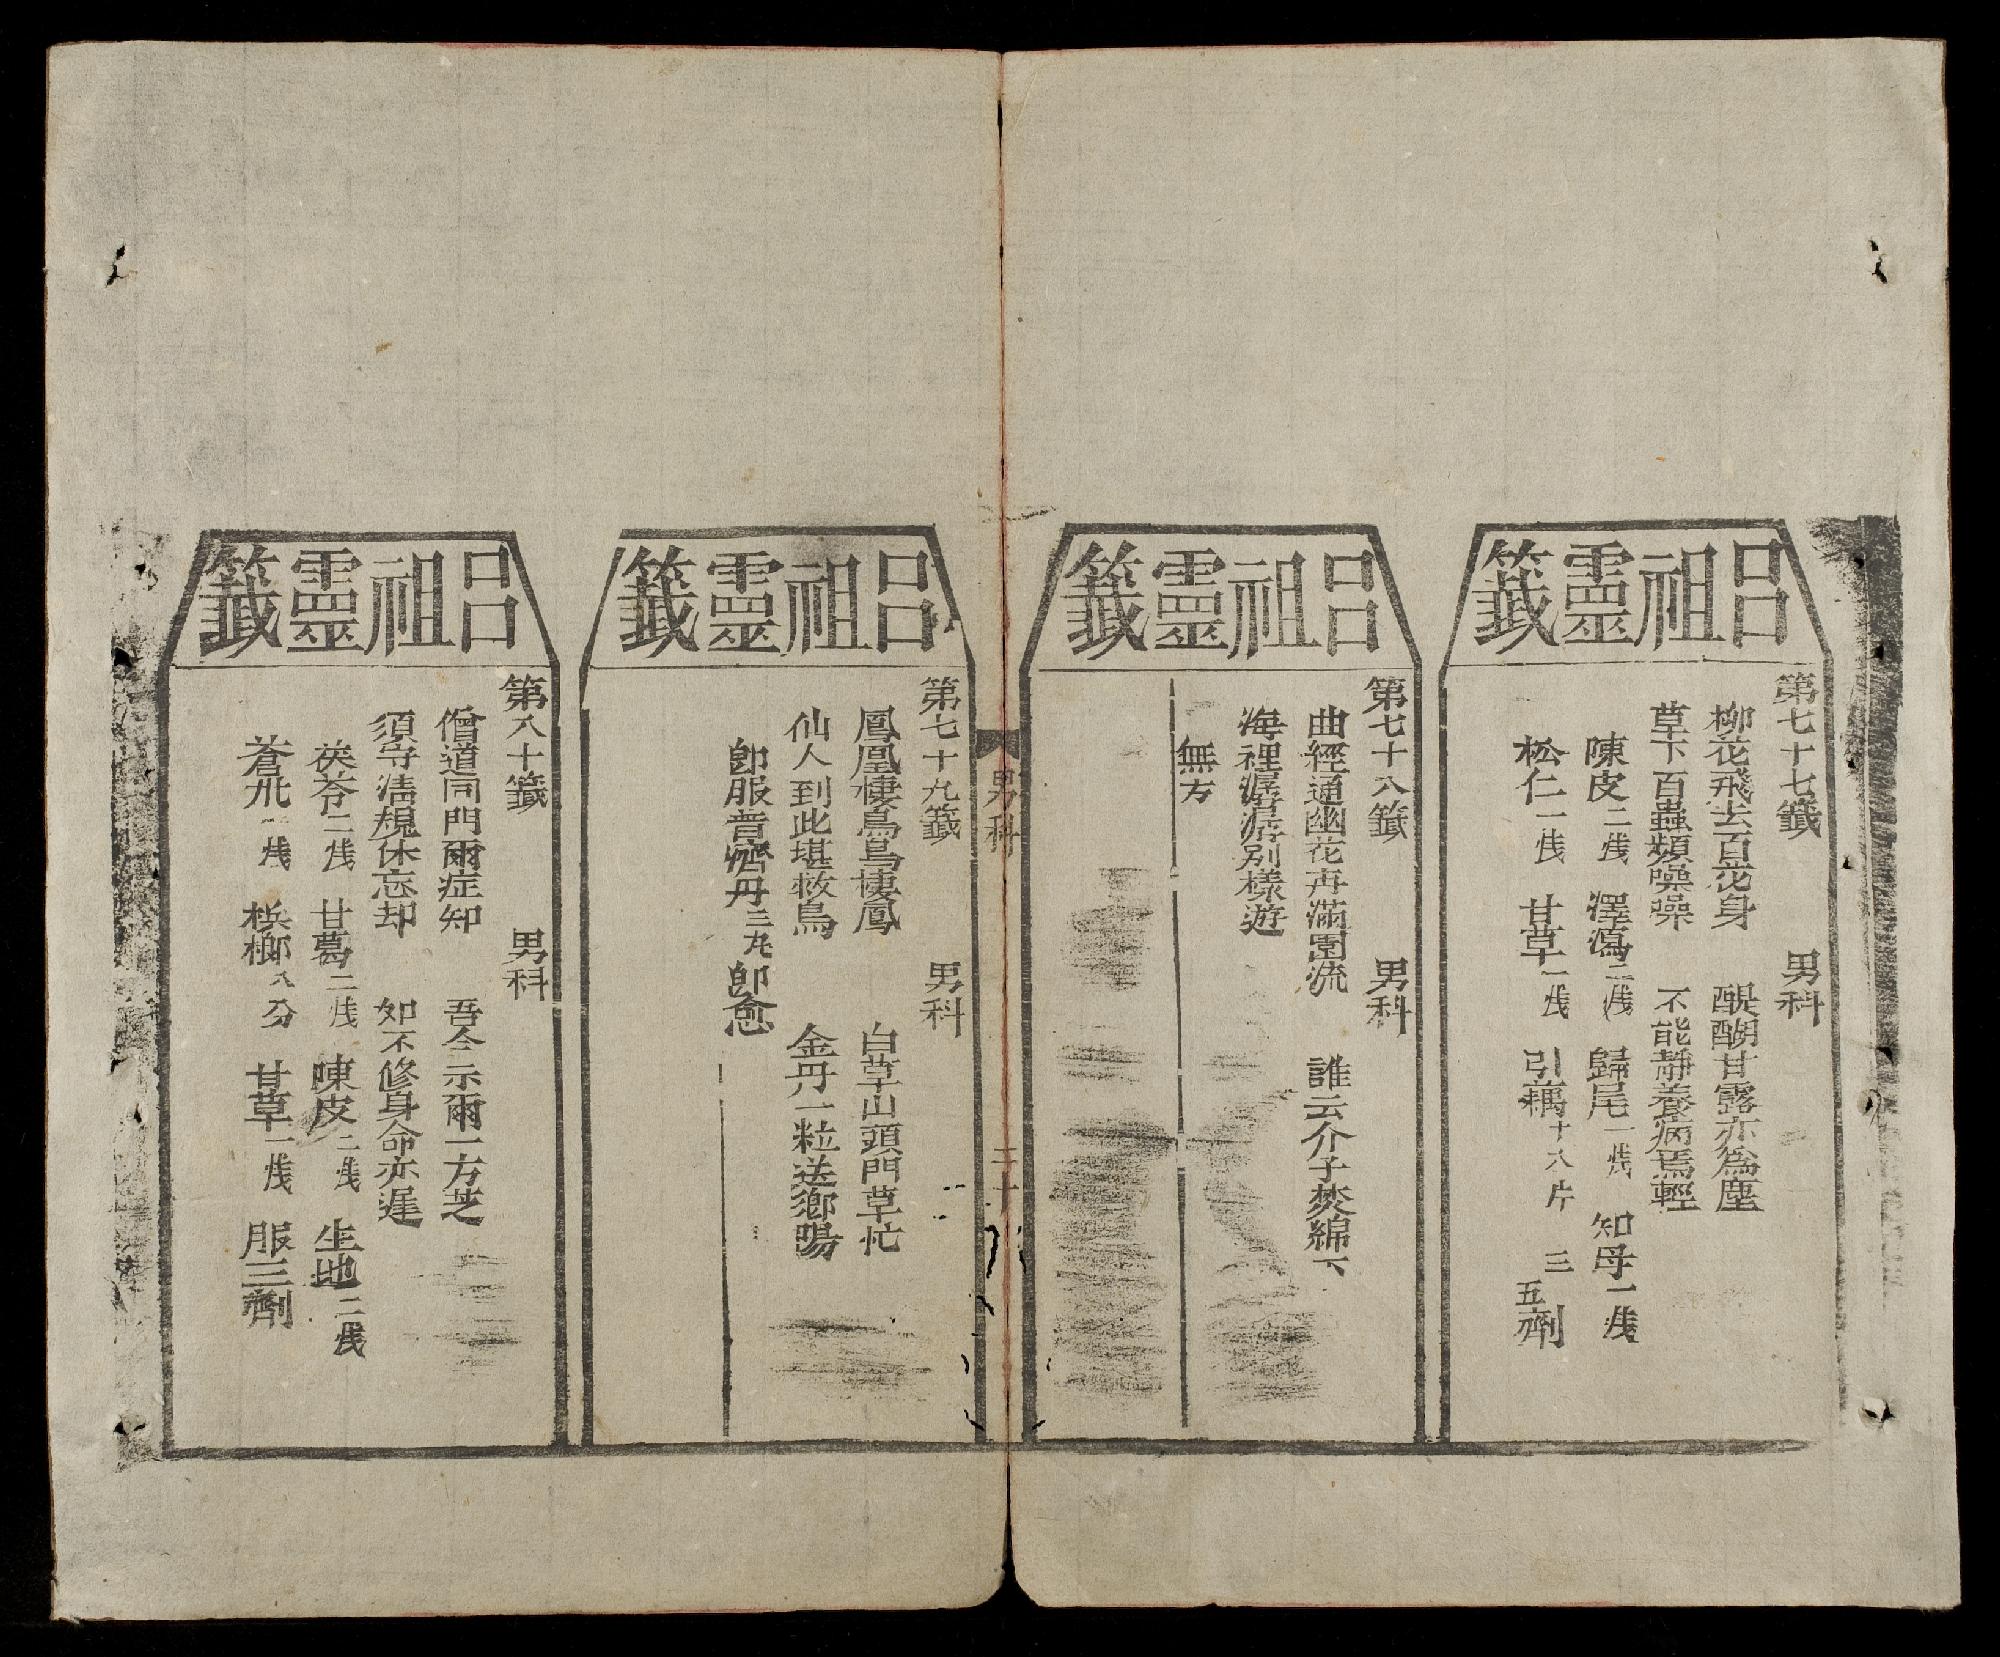 呂祖靈籤
第七十七籤 男科
柳花飛去百花身 醍醐甘露亦為塵
草下百蟲頻噪噪 不能靜養病焉輕
陳皮二戔 澤瀉二戔 歸尾一戔 知母一戔
松仁一戔 甘草一戔 引藕十八片 三五劑
呂祖靈籤
第七十八籤 男科
曲經通幽花再滿園流 誰云介子焚綿下
海裡潺潺別樣遊
無方
男科
三十
呂祖靈籤
第七十九籤 男科
鳳凰棲鳥鳥棲鳳 白草山頭門草忙
仙人到此堪救鳥 金丹一粒送鄉陽
卽服普濟丹三丸卽愈
呂祖靈籤
第八十籤 男科
僧道同門爾症知 吾今示爾一方芝
須守清規休忘却 如不修身命亦遲
茯苓二戔 甘葛二戔 陳皮二戔 生地二戔
蒼朮一戔 梹榔八分 甘草一戔 服三劑